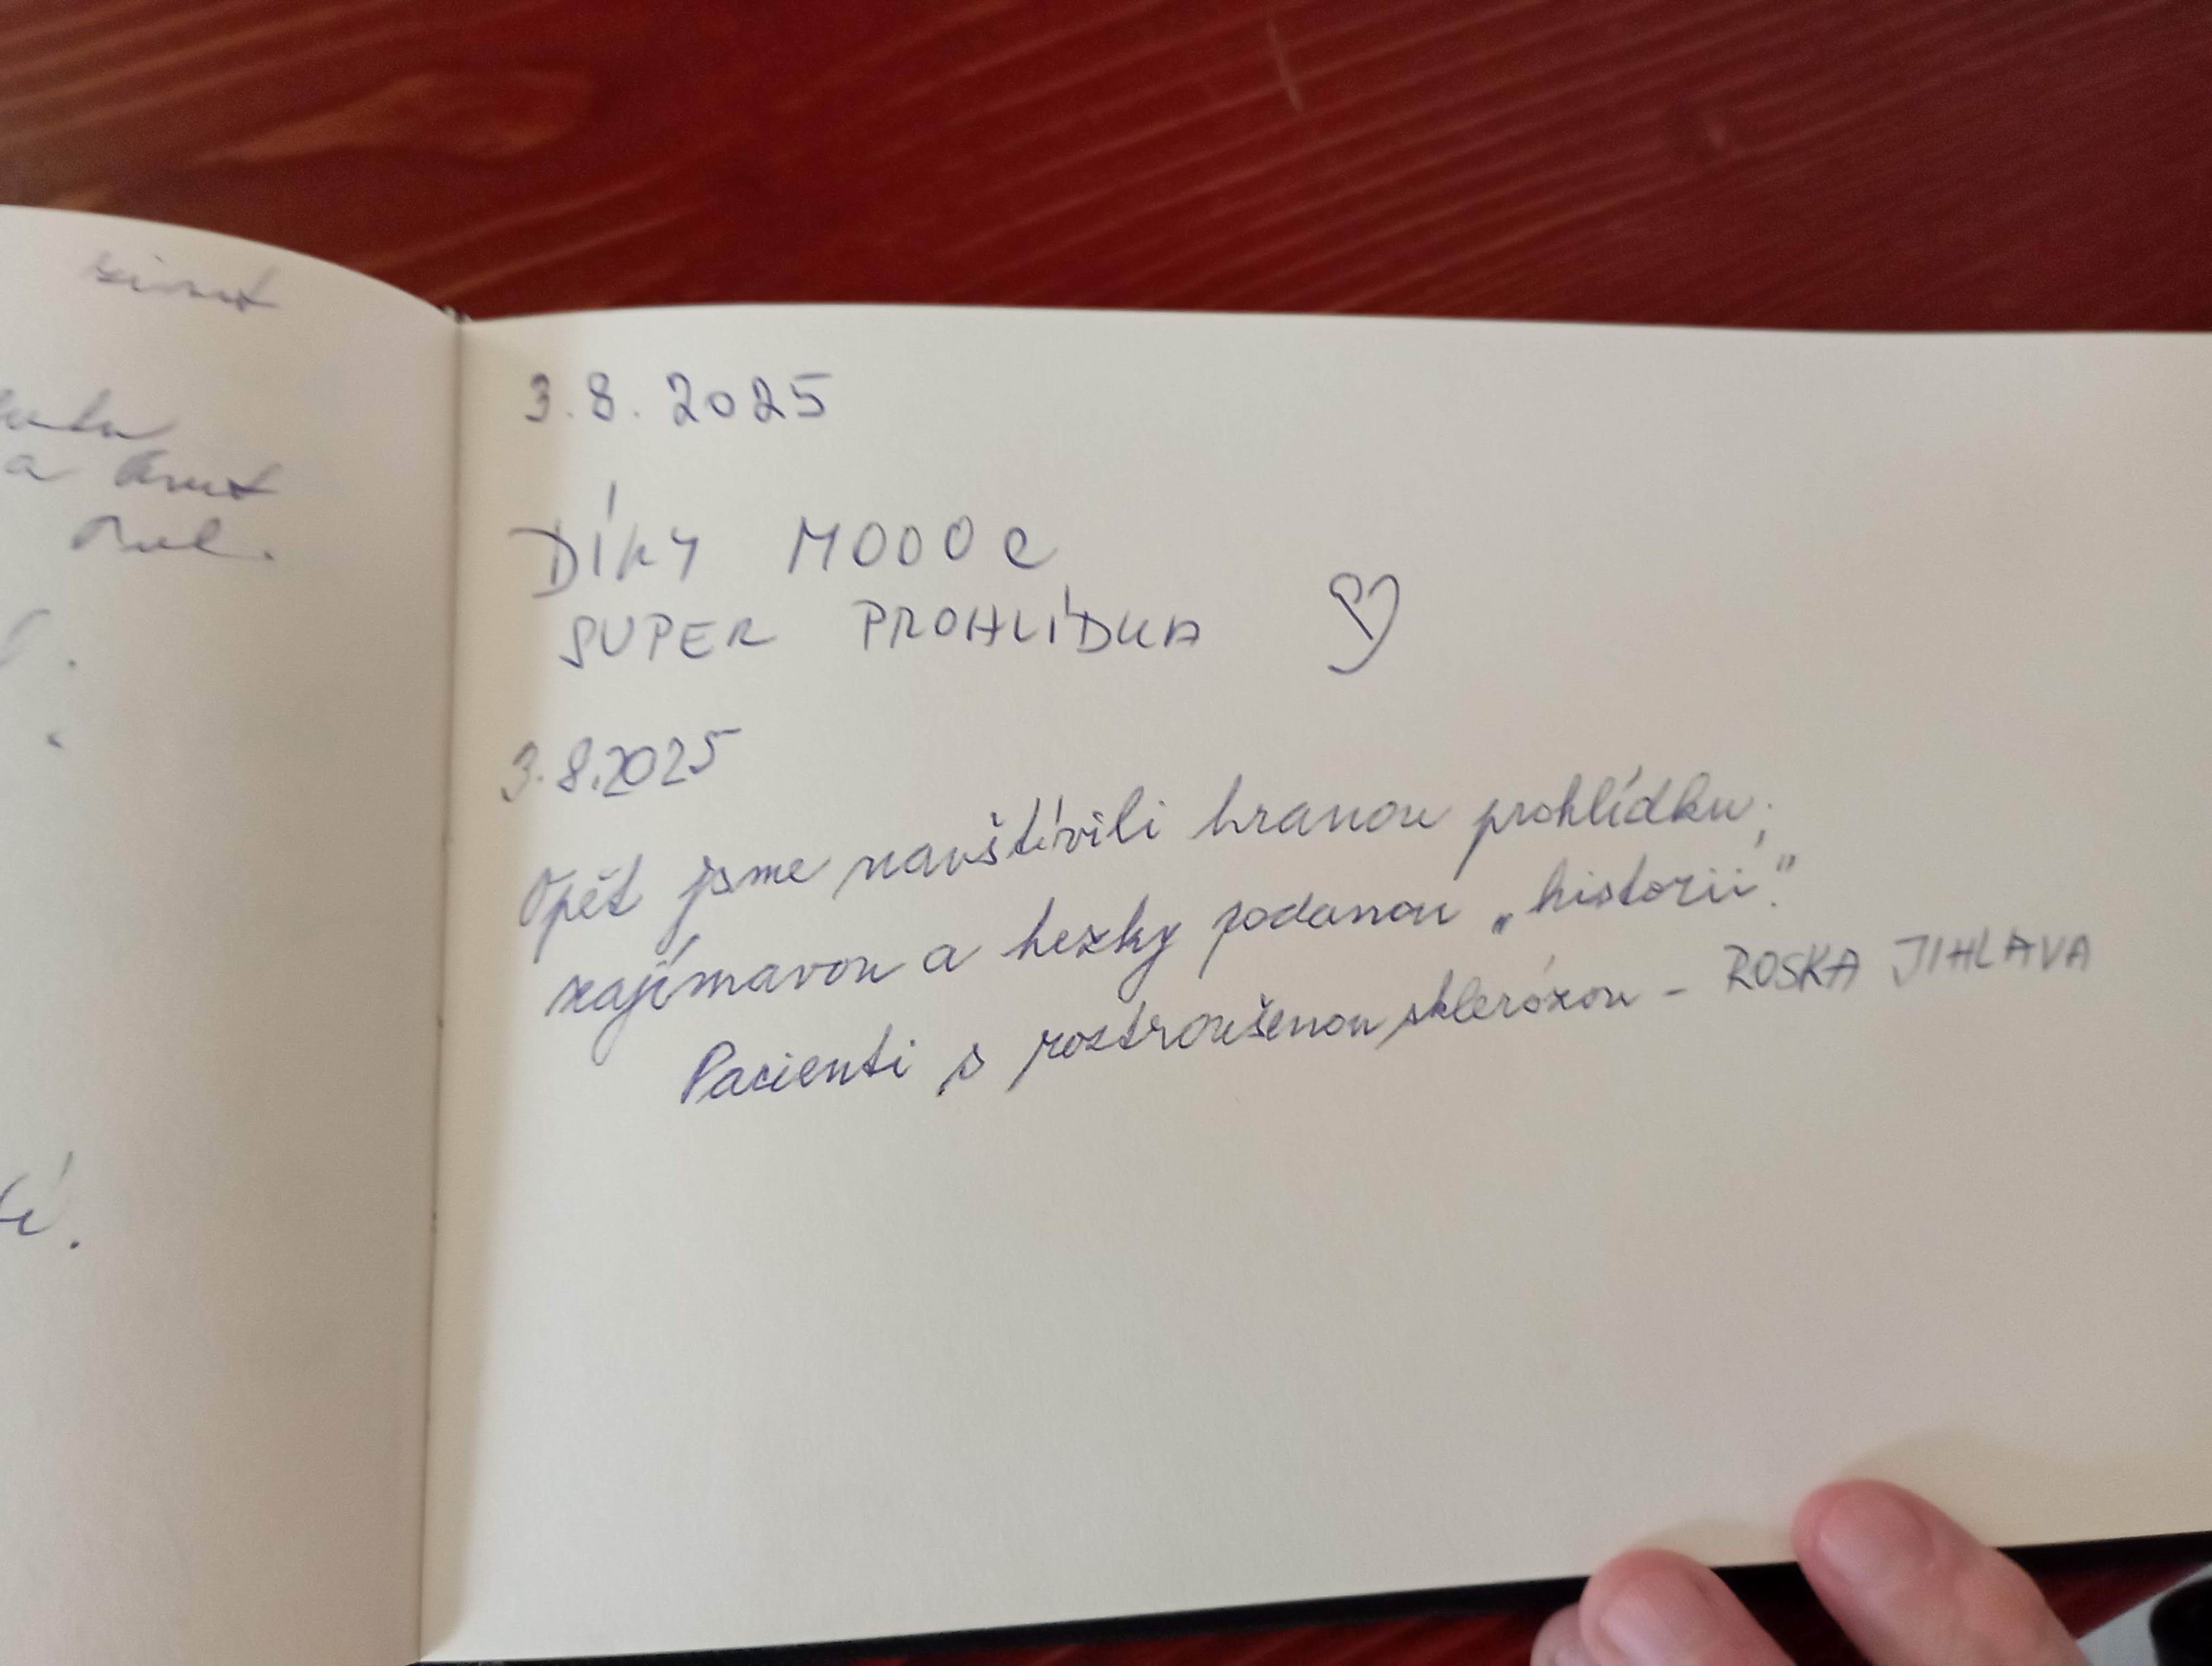 3.8.2025
DÍKY MOOOC
SUPER PROHLÍDKA
3.8.2025
Opět jsme navštívili hranou prohlídku,
zajímavou a hezky podanou „historii."
Pacienti s roztroušenou sklerózou - ROSKA JIHLAVA